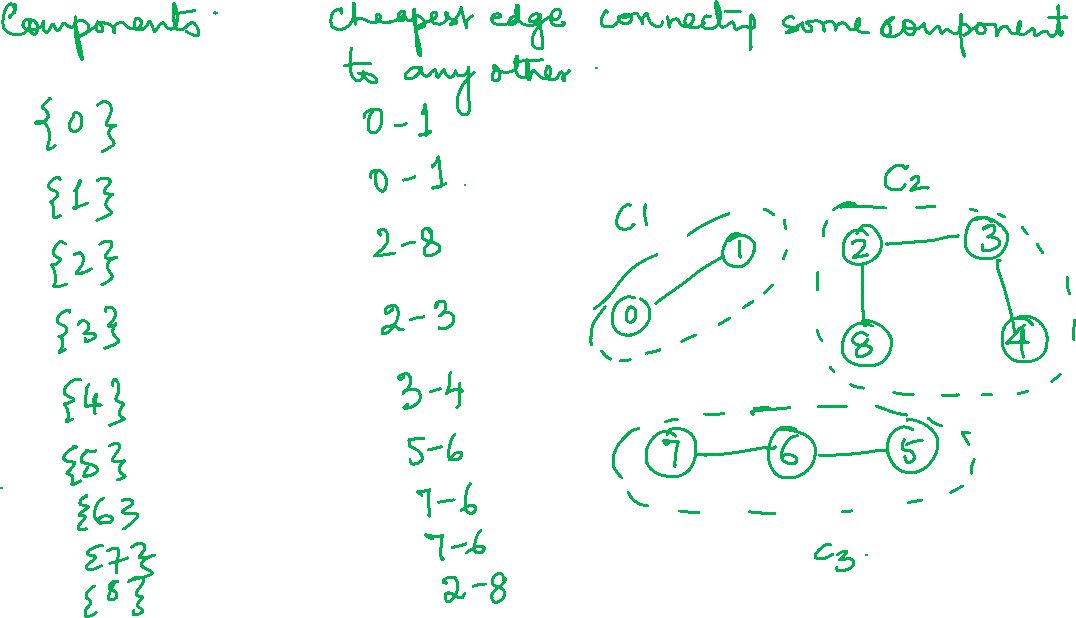 Components
cheapest edge connecting some component
to any other.
{0} 0-1
{1} 0-1
{2} 2-8
{3} 2-3
{4} 3-4
{5} 5-6
{6} 7-6
{7} 7-6
{8} 2-8
C1
1
0
C2
2 3
8 4
7 6 5
C3.